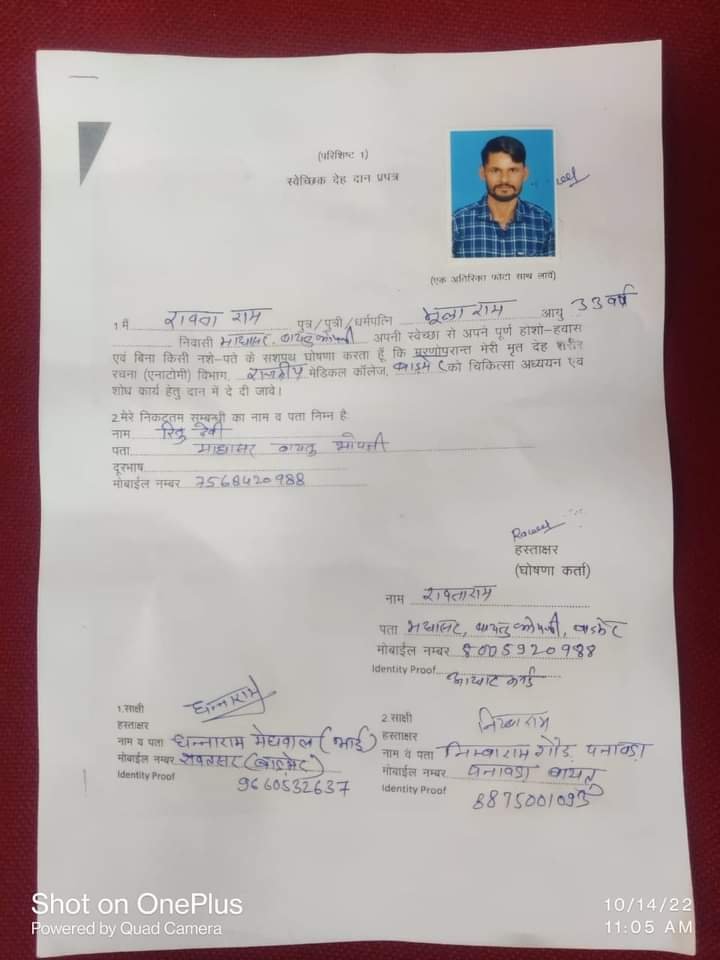 (परिशिष्ट 1)
स्वेच्छिक देह दान प्रपत्र
(एक अतिरिक्त फोटो साथ लावें)
1.मैं रावता राम पुत्र/पुत्री/धर्मपत्नि आयु 33 वर्ष
निवासी अपनी स्वेच्छा से अपने पूर्ण होशो-हवास
एवं बिना किसी नशे-पते के सशपथ घोषणा करता हूँ कि मरणोपरान्त मेरी मृत देह शरीर
रचना (एनाटोमी) विभाग, मेडिकल कॉलेज, बाड़मेर को चिकित्सा अध्ययन एवं
शोध कार्य हेतु दान में दे दी जावे।
2.मेरे निकटतम सम्बन्धी का नाम व पता निम्न है:
नाम देवी
पता बायतु भोपजी
दूरभाष
मोबाईल नम्बर 7568420988
हस्ताक्षर
(घोषणा कर्ता)
नाम रावताराम
पता बाड़मेर
मोबाईल नम्बर 8005920988
Identity Proof
आधार कार्ड
1.साक्षी धन्नाराम
हस्ताक्षर
नाम व पता धन्नाराम मेघवाल (भाई)
मोबाईल नम्बर (बाड़मेर)
Identity Proof 9660532637
2.साक्षी निम्बाराम
हस्ताक्षर
नाम व पता निम्बाराम गौड़ पनावड़ा
मोबाईल नम्बर पनावड़ा बायतु
Identity Proof 8875001093
Shot on OnePlus
Powered by Quad Camera
10/14/22
11:05 AM